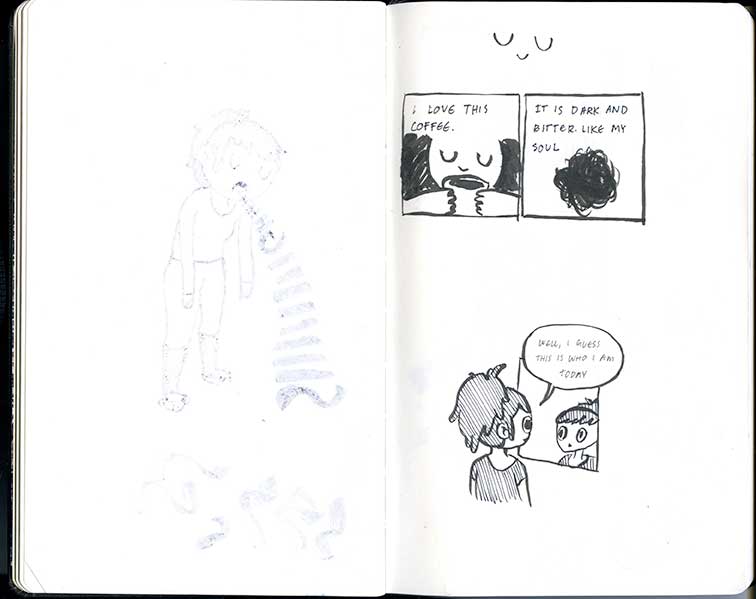 I LOVE THIS
COFFEE.
IT IS DARK AND
BITTER. LIKE MY
SOUL
WELL, I GUESS
THIS IS WHO I AM
TODAY